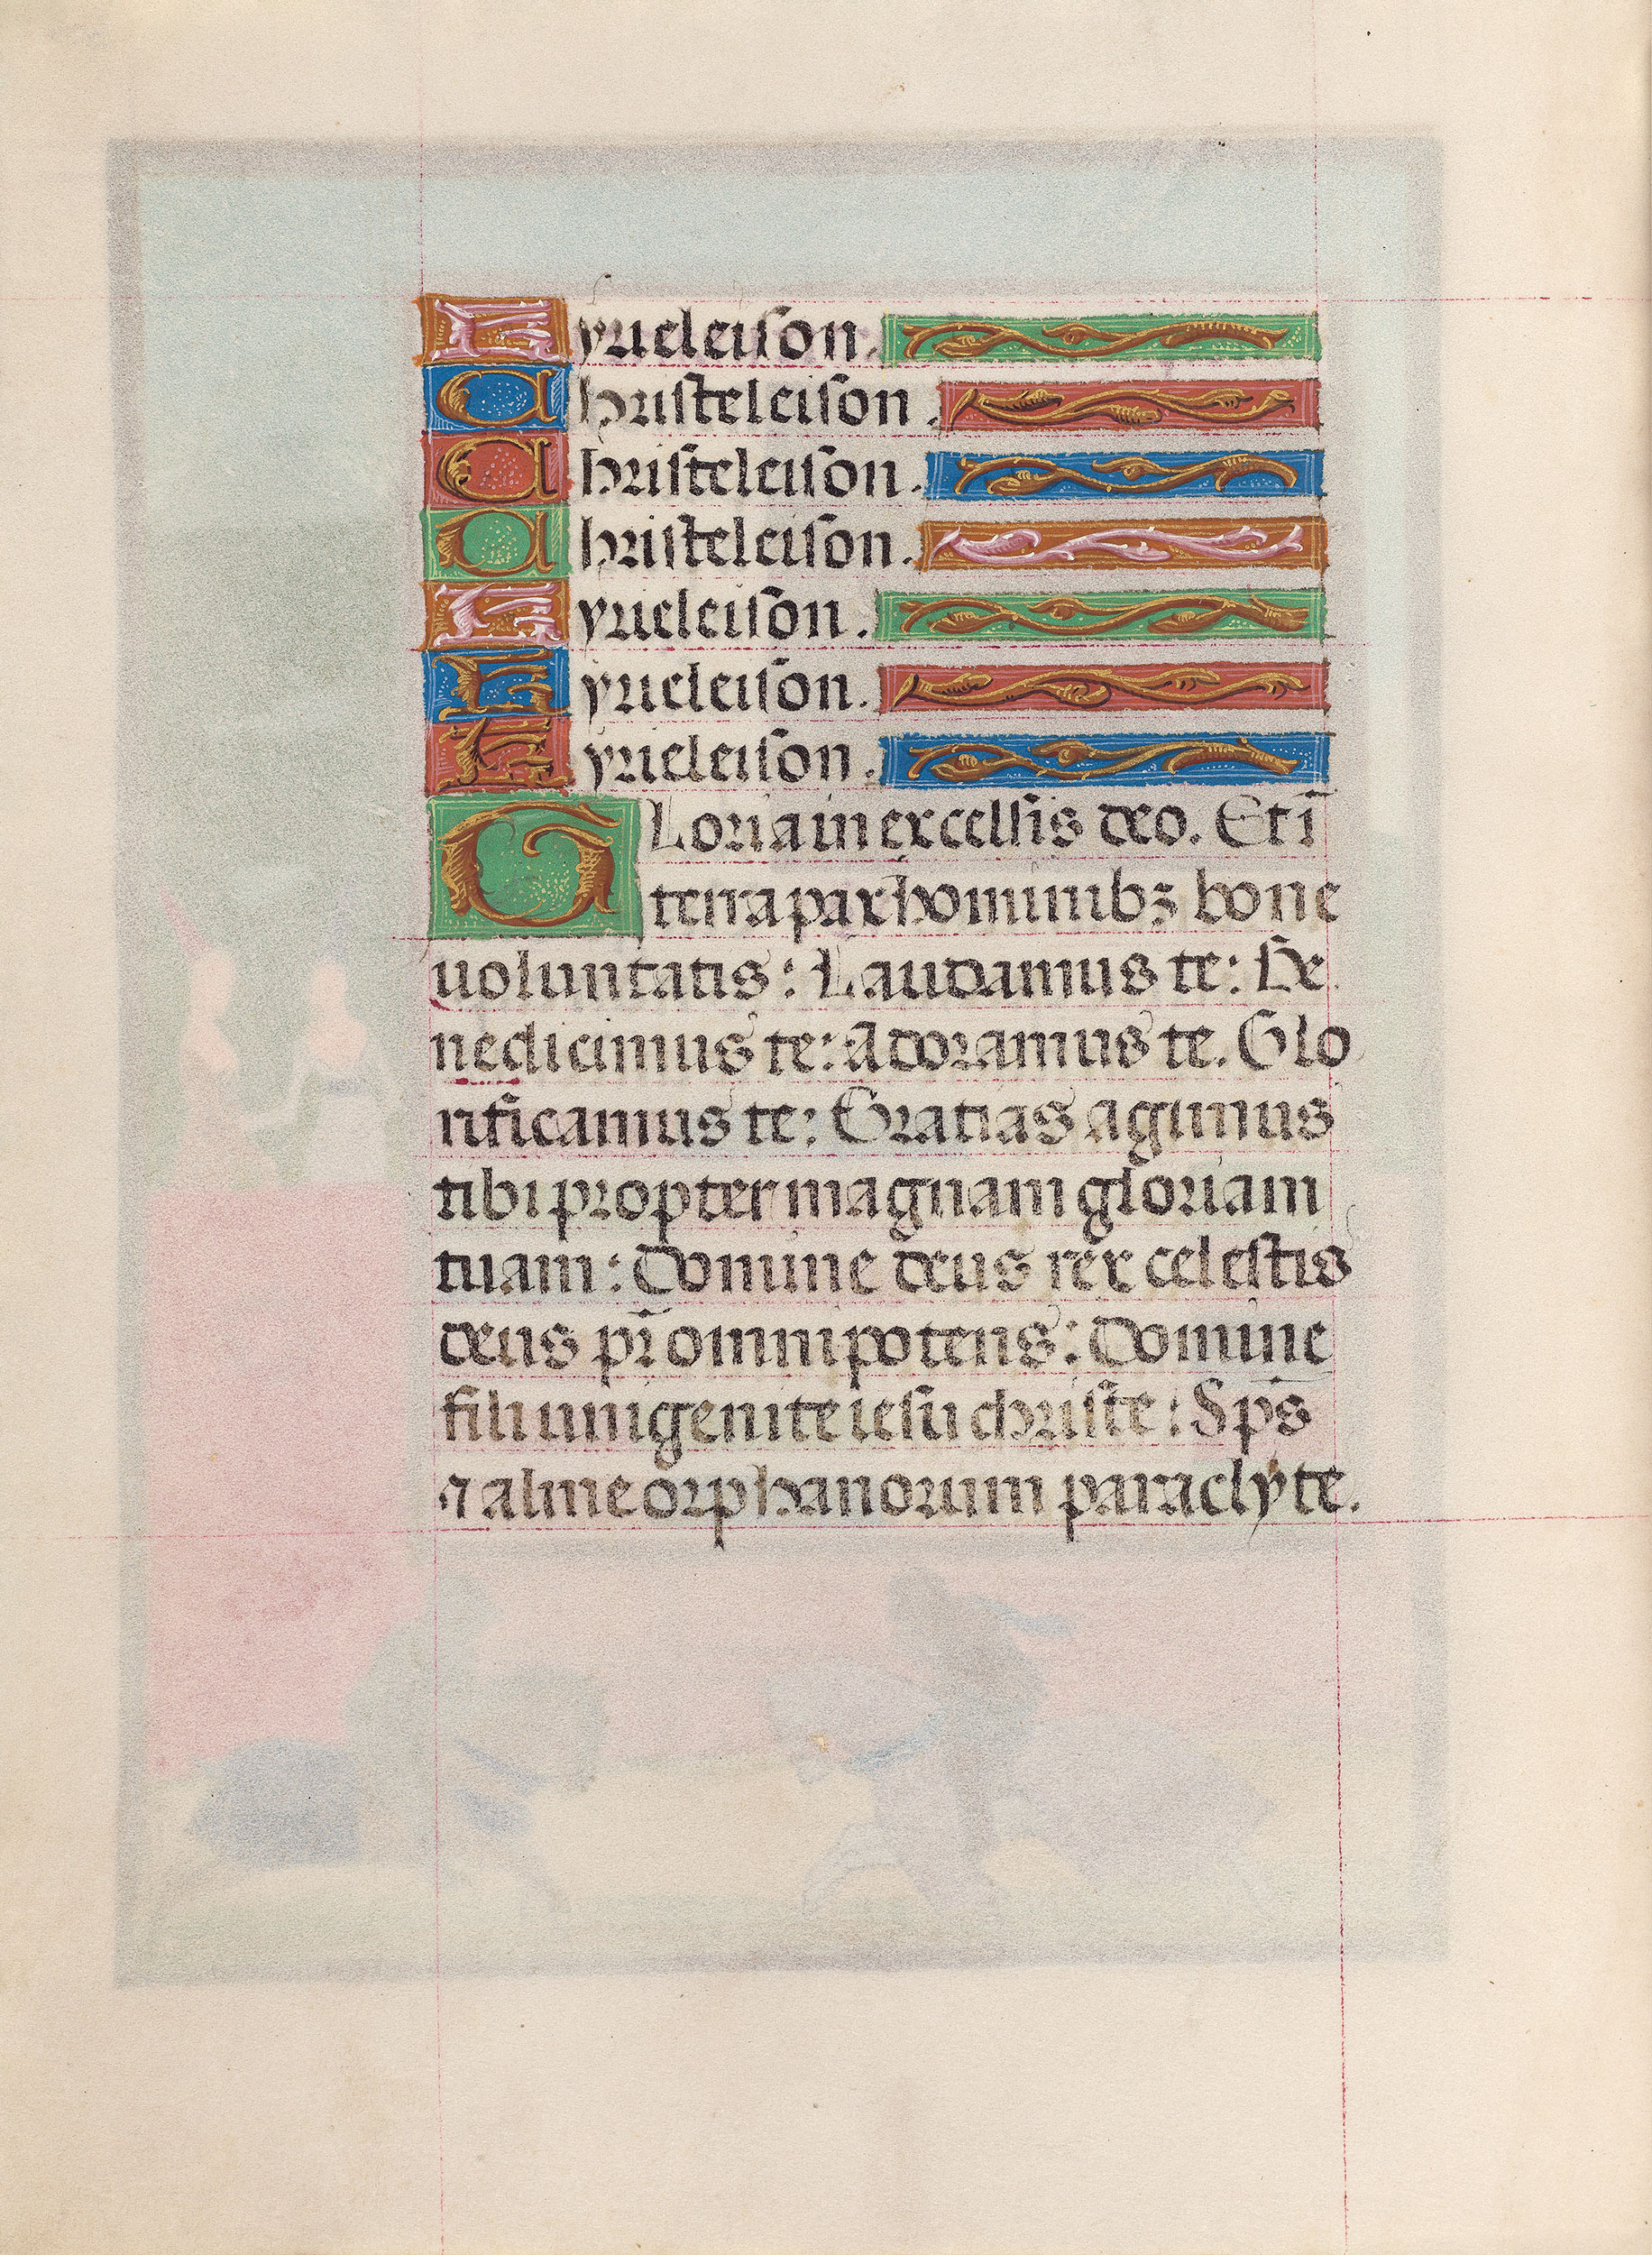 Kyrieleison.
Christeleison.
Christeleison.
Christeleison.
Kyrieleison.
Kyrieleison.
Kyrieleison.
GLoria in excelsis deo. Et ī
terra pax hominibꝫ bone
uoluntatis: Laudamus te: Be
nedicimus te: Adoramus te. Glo
rificamus te: Gratias agimus
tibi propter magnam gloriam
tuam: Domine deus rex celestis
deus pr̄ omnipotens: Domine
fili unigenite iesu christe: Sp̄s
⁊ alme orphanorum paraclyte.